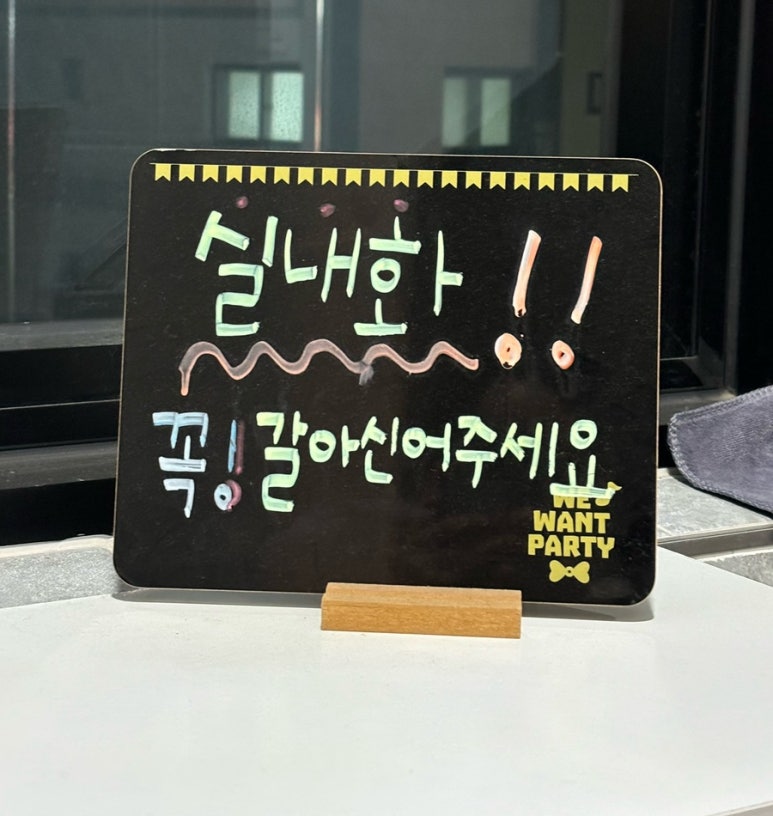 실내화!!
꼭! 갈아신어주세요
WE
WANT
PARTY